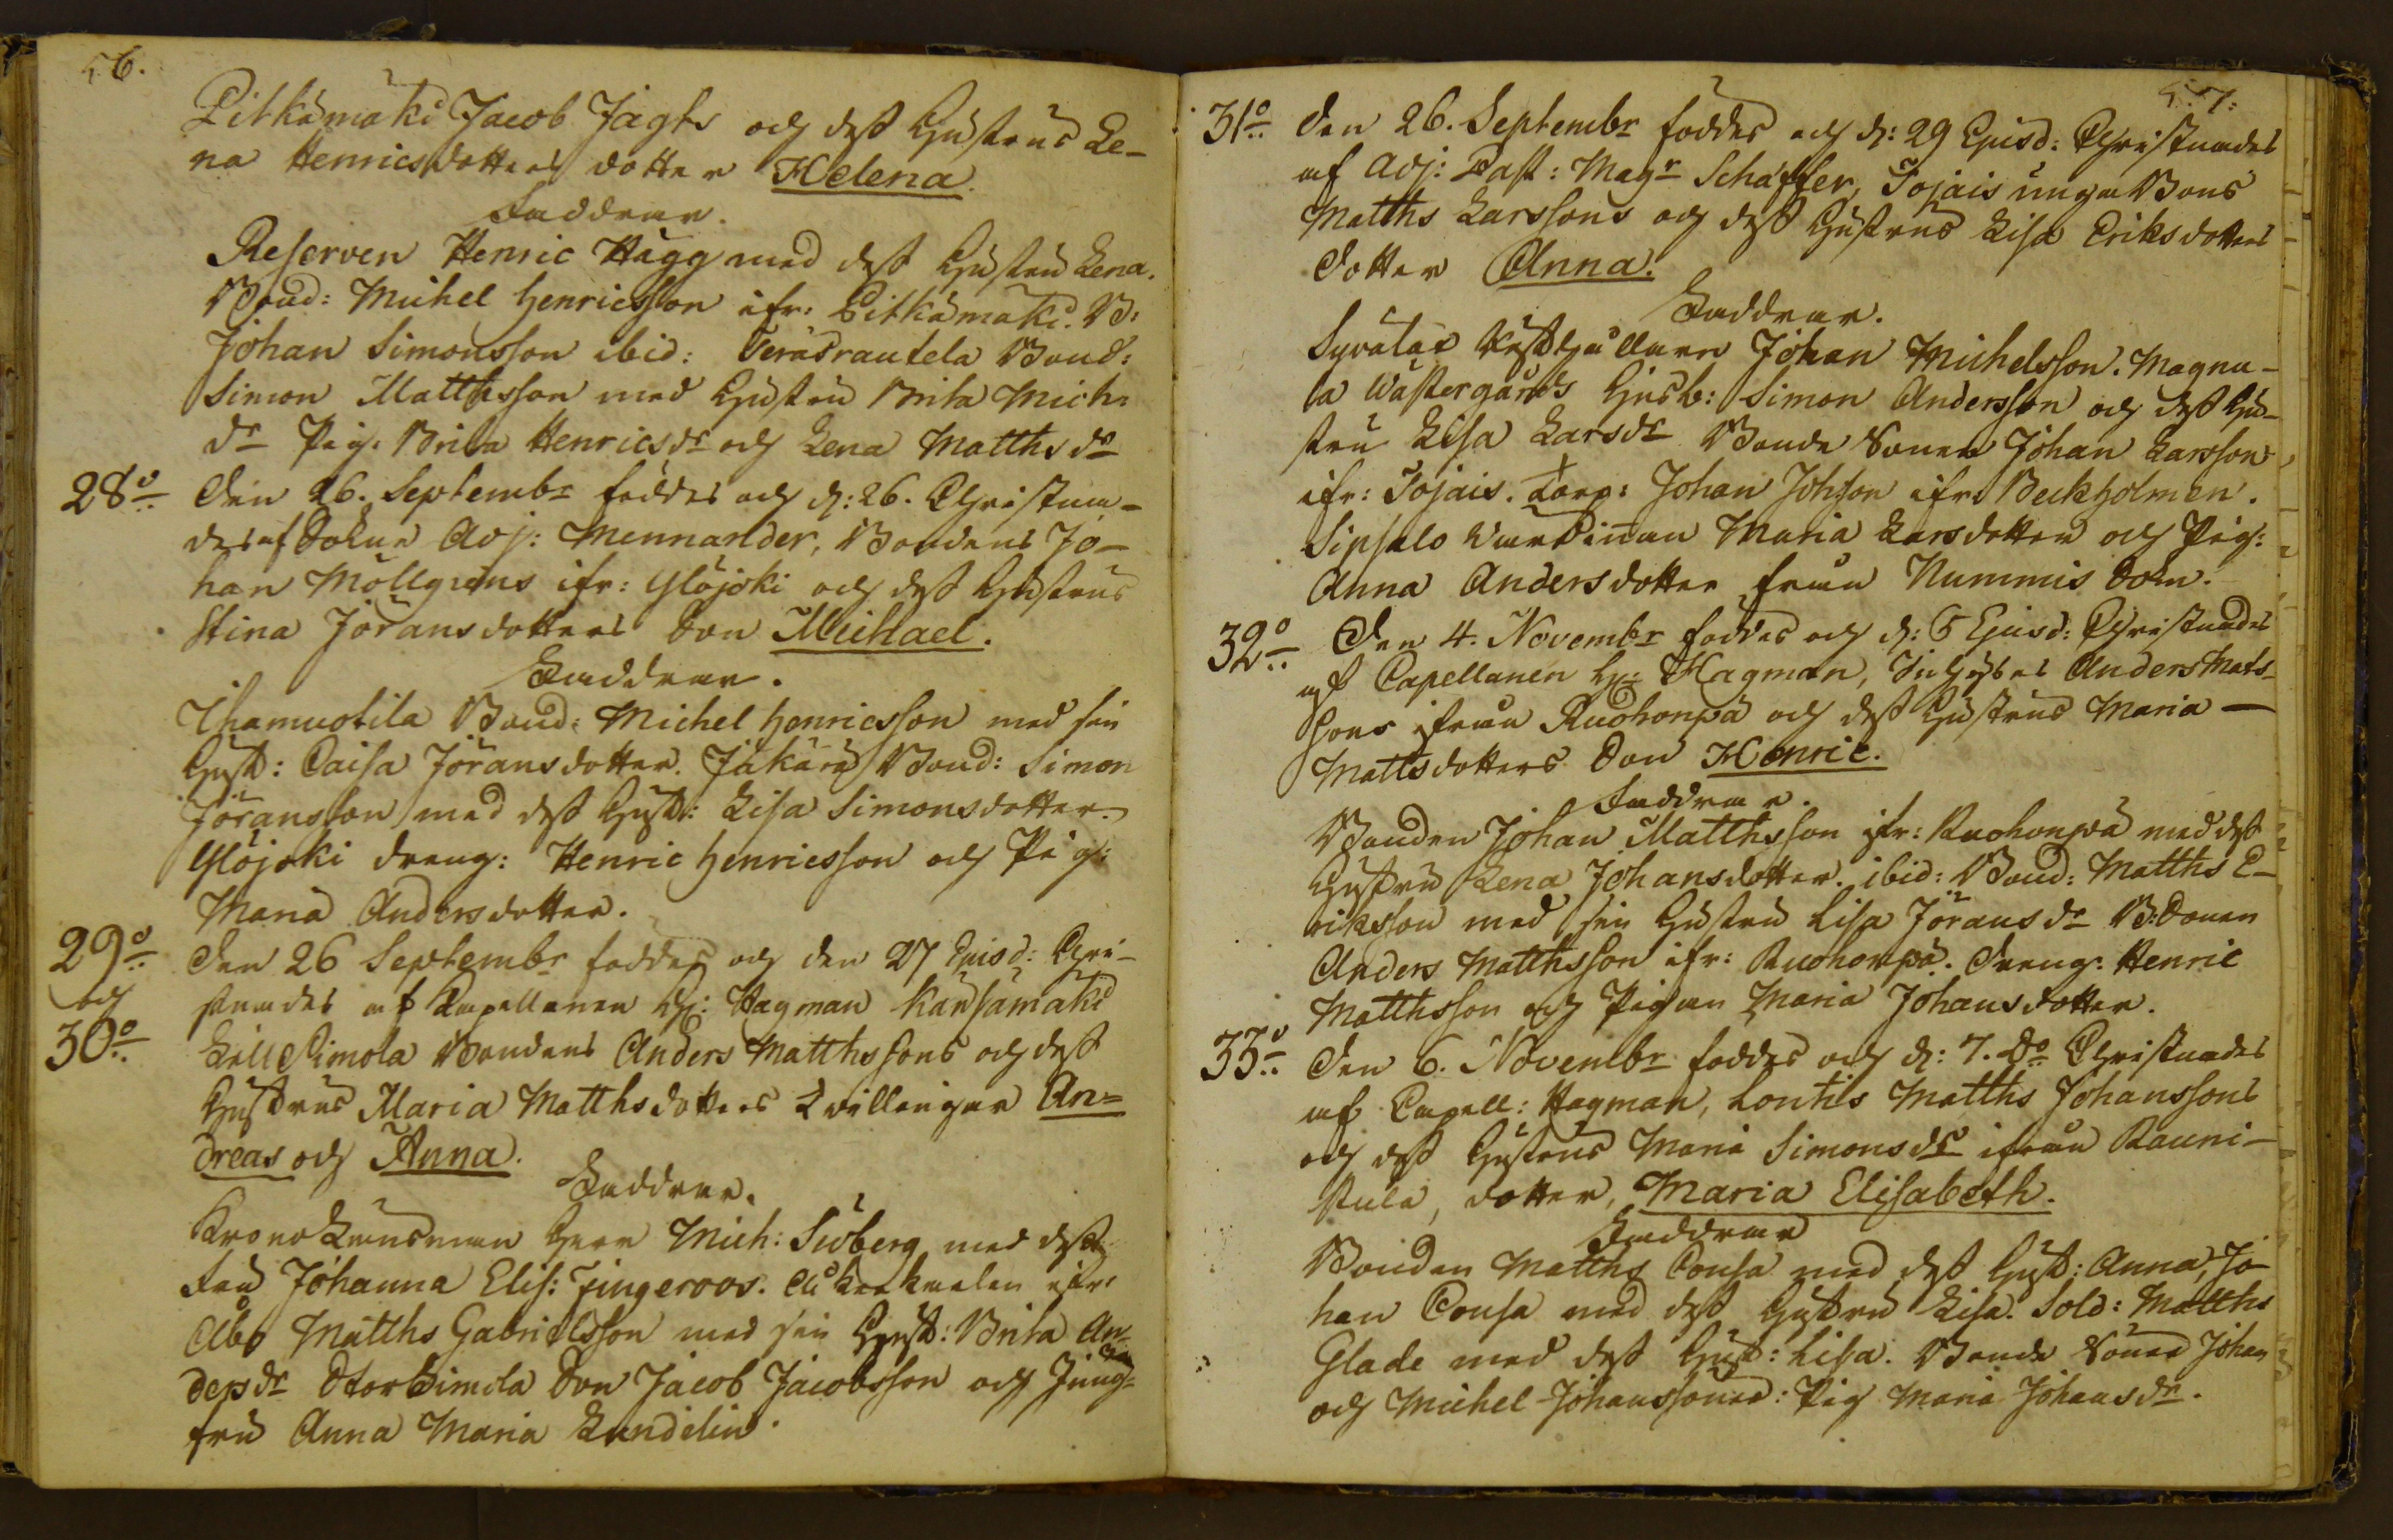 56.
Pitkämäki Jacob Jägts och dess Hustrus Le-
na Henricsdotters dotter Helena.
Faddrar.
Reserven Henric Hägg med dess Hustru Lena.
Bond: Michel Henricsson ifr: Pitkämäki. B:
Johan Simonsson ibid: Teräsrautela Bond:
Simon Matthsson med Hustru Brita Mich:
dr Pig. Brita Henricsdr och Lena Matthsdr
28:o Den 26. Septembr föddes och d: 26. Christna-
des af Sokne Adj: Mennander, Bondens Jo-
han Möllgrens ifr: Ylöjoki och dess Hustrus
Stina Jöransdotters Son Michael.
Faddrar.
Ihamuotila Bond: Michel Henricsson med sin
Hust: Caisa Jöransdotter. Jäkärä Bond: Simon
Jöransson med dess Hust: Lisa Simonsdotter.
Ylöjoki dreng: Henric Henricsson och Pig:
Maria Andersdotter.
29:o och 30:o Den 26 Septembr föddes och den 27 Ejusd: Chri-
stnades af Capellanen H: Hagman Kärsämäki
Lill Simola Bondens Anders Matthssons och dess
Hustrus Maria Matthsdotters Tvillingar An-
dreas och Anna.
Faddrar.
Krono Länsman Herr Mich: Siöberg med dess
Fru Johanna Elis: Fingerroos. ifr:
Åbo Matths Gabrielsson med sin Hust: Brita An-
dersdr Stor Simola Son Jacob Jacobsson och Jung-
fru Anna Maria Lundelin.
57.
31:o Den 26. Septembr föddes och d: 29 Ejusd: Christnades
af Adj: Past: Magr Schäffer, Tojais unga Bons
Matths Larssons och dess Hustrus Lisa Eriksdotters
Dotter Anna.
Faddrar.
Syvälax Johan Michelsson. Magnu-
la Wästergårds Husb: Simon Andersson och dess Hu-
stru Lisa Larsdr Bonde Sonen Johan Larsson
ifr: Tojais. Torp: Johan Johsson ifr: Beckholmen.
Sipsalo Värdinnan Maria Larsdotter och Pig:
Anna Andersdotter från Nummis Sokn.
32:o Den 4. Novembr föddes och d: 5 Ejusd: Christnades
af Capellanen H: Hagman, Inhyses Anders Mats-
sons ifrån Ruohonpä och dess Hustrus Maria
Mattsdotters Son Henric.
Faddrar.
Bonden Johan Matthsson ifr: Ruohonpä med dess
Hustru Lena Johansdotter. ibid: Bond: Matths E-
riksson med sin Hustru Lisa Jöransdr B: Sonen
Anders Matthsson ifr: Ruohonpä. Dreng: Henric
Matthsson och Pigan Maria Johansdotter.
33:o Den 6. Novembr föddes och d: 7. do Christnades
af Capell: Hagman, Lontis Matths Johanssons
och dess Hustrus Maria Simonsdr ifrån Rauni-
stula, dotter, Maria Elisabeth.
Faddrar
Bonden Matths Consa med dess Hust: Anna, Jo-
han Consa med dess Hustru Lisa. Sold: Matths
Glade med dess Hust: Lisa. Bonde Söner Johan
och Michel Johanssöner: Pig Maria Johansdr.